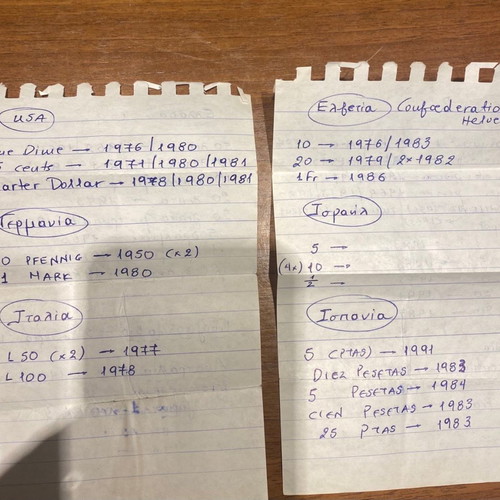 USA
ne Dime → 1976/1980
5 cents → 1971/1980/1981
uarter Dollar → 1978/1980/1981
Γερμάνια
0 PFENNIG → 1950 (x2)
1 MARK → 1980
Ιταλία
L50 (x2) → 1977
L100 → 1978
Ελβετία Confœderatio
Helve
10 → 1976/1983
20 → 1979/2x1982
1Fr → 1986
Ισραήλ
5 →
(4x) 10 →
1/2 →
Ισπανία
5 (PTAS) → 1991
DIEZ PESETAS → 1983
5 PESETAS → 1984
CIEN PESETAS → 1983
25 PTAS → 1983